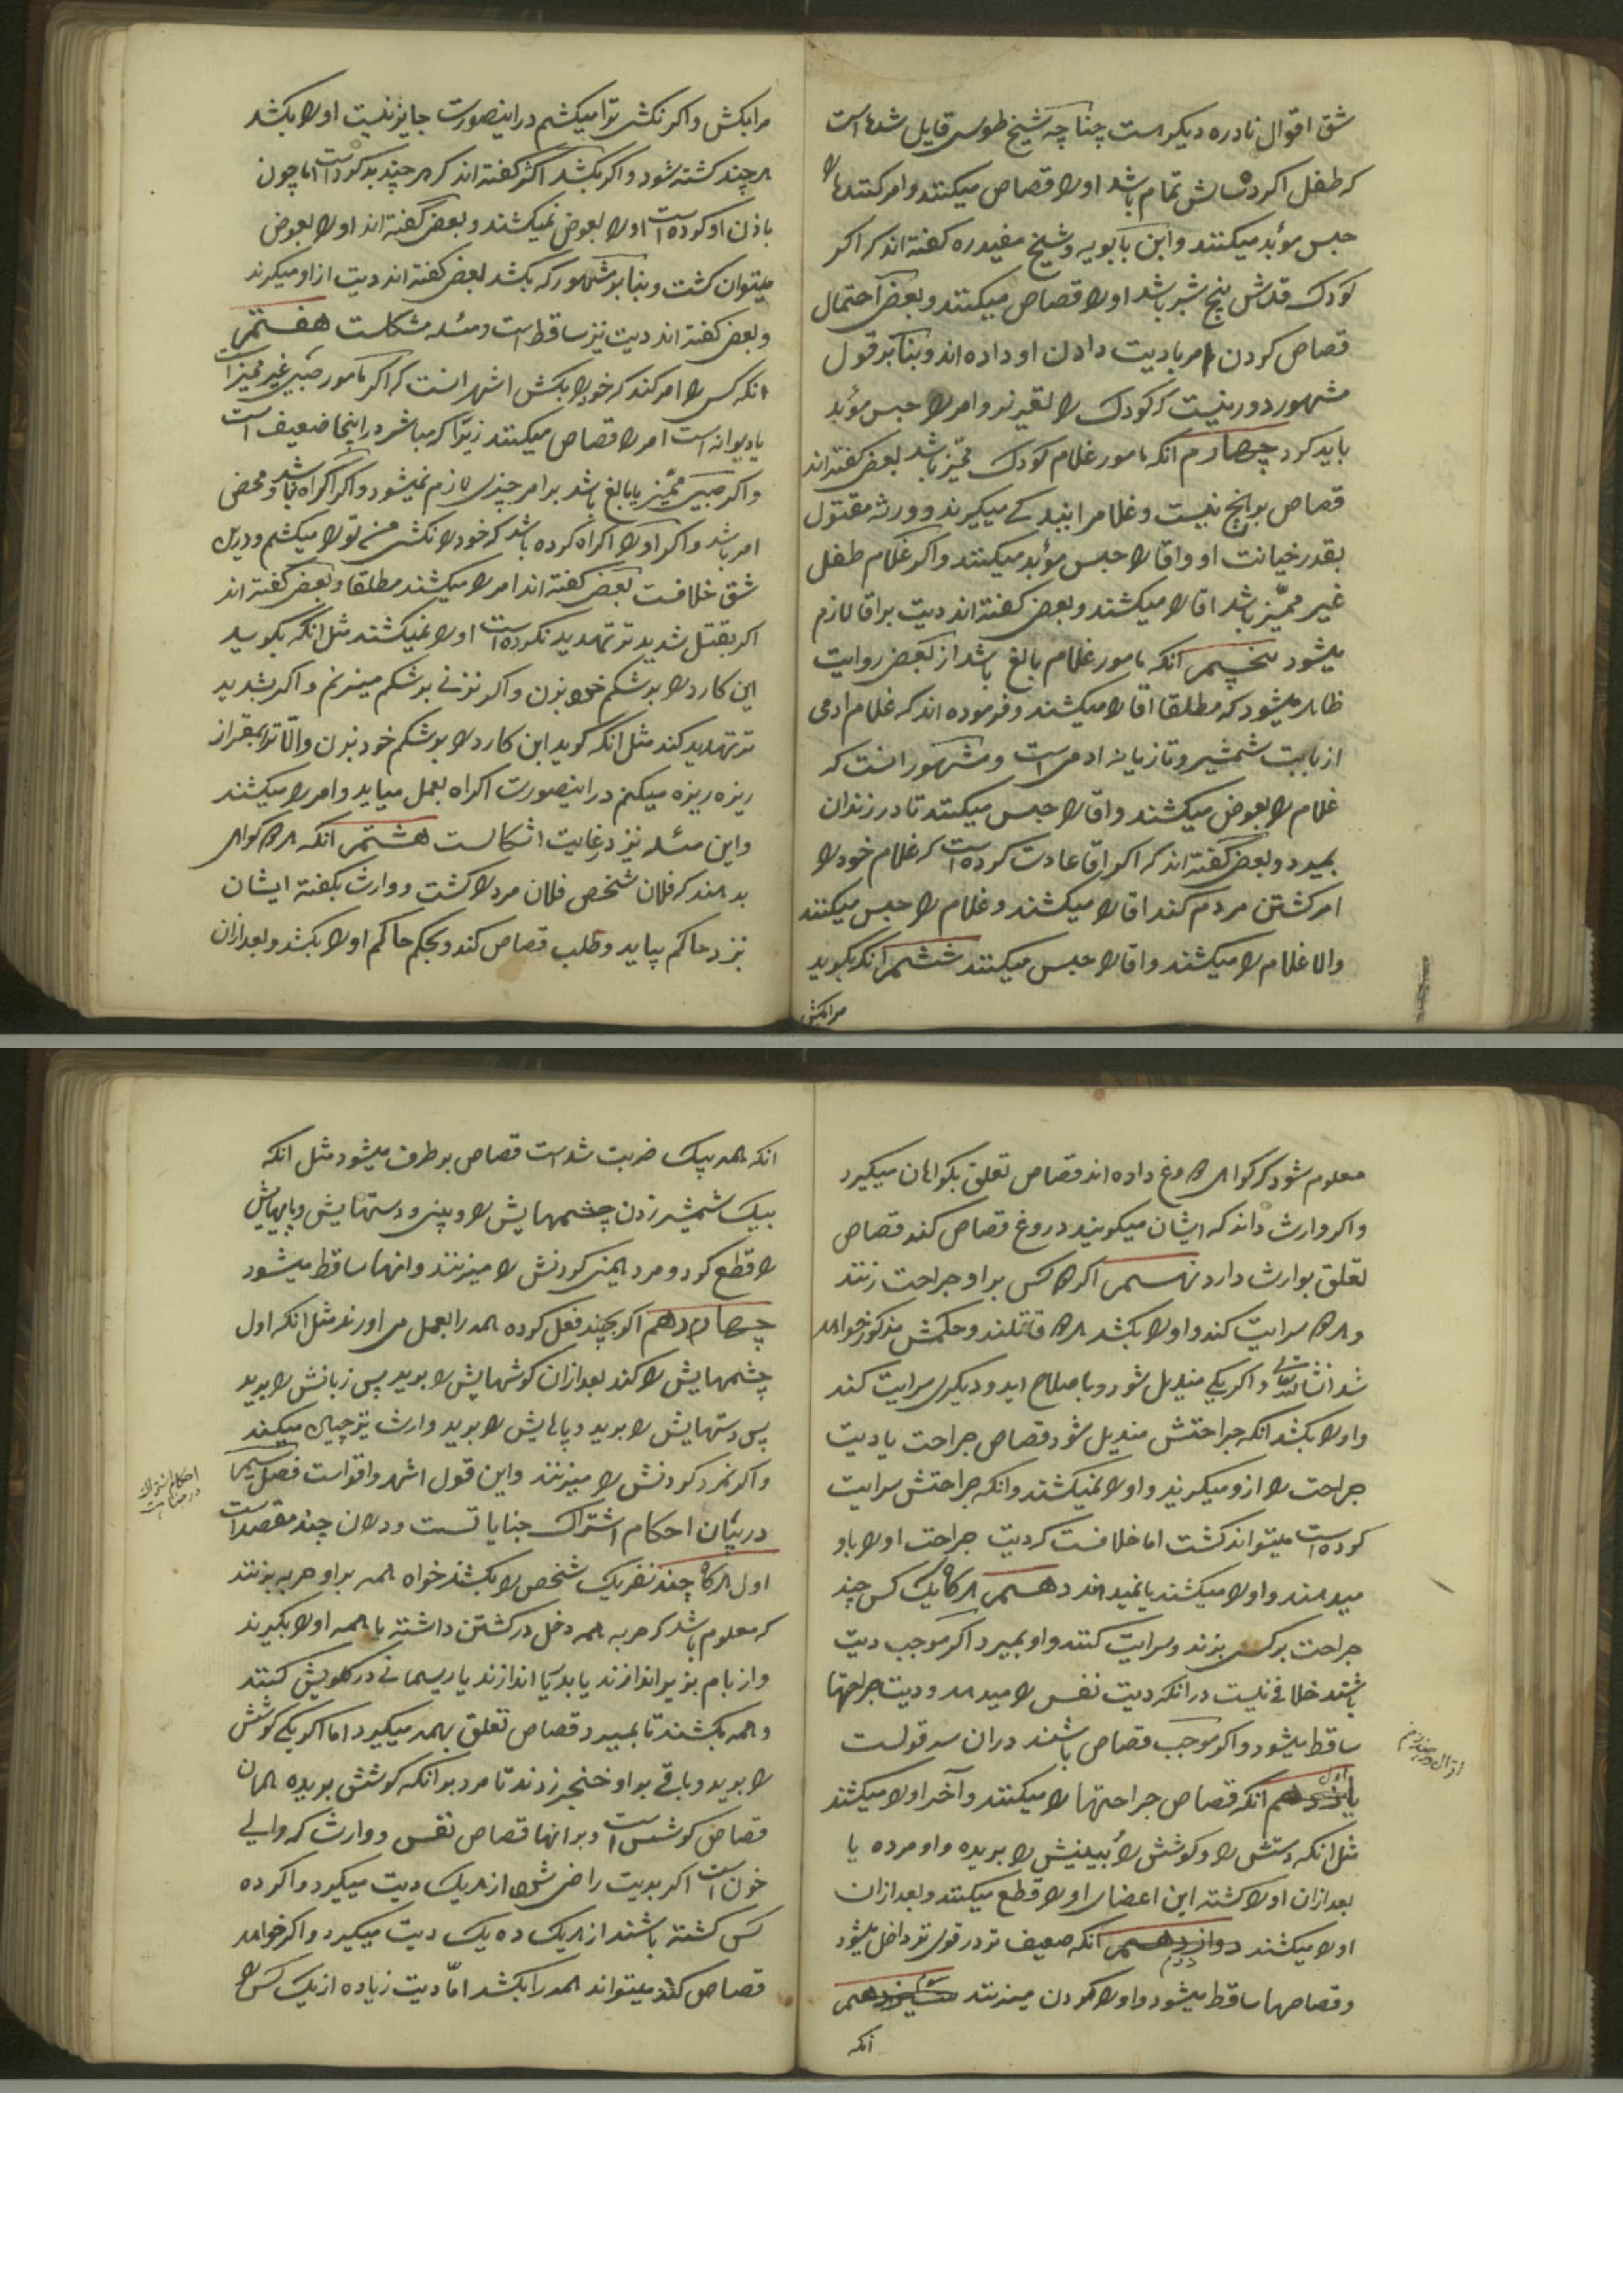 شق اقوال نادره دیکر است چناچه شیخ طوسی قایل شده است
که طفل اکر ده سالش تمام باشد او را قصاص میکنند و امر کننده را
حبس مؤبد میکنند و ابن بابویه و شیخ مفید ره کفته اند که اکر
کودک قدش پنج شبر باشد او را قصاص میکنند و بعضی احتمال
قصاص کردن امر با دیت دادن او داده اند و بنا بر قول
مشهور دور نیست که کودک را تعزیر نمایند و امر را حبس مؤبد
باید کرد چهارم انکه مامور غلام کودک ممیّز باشد بعضی کفته اند
قصاص بر هیچ نیست و غلام را ببندکی میکیرند و ورثه مقتول
بقدر خیانت او و اقا را حبس مؤبد میکنند و اکر غلام طفل
غیر ممیّز باشد اقا را میکشند و بعضی کفته اند دیت بر اقا لازم
میشود پنجم انکه مامور غلام بالغ باشد از بعضی روایت
ظاهر میشود که مطلقا اقا را میکشند و فرموده اند که غلام ادمی
از بابت شمشیر و تازیانه ادمی است و مشهور انست که
غلام را بعوض میکشند و اقا را حبس میکنند تا در زندان
بمیرد و بعضی کفته اند که اکر اقا عادت کرده است که غلام خود را
امر کشتن مردم کند اقا را میکشند و غلام را حبس میکنند
والا غلام را میکشند و اقا را حبس میکنند ششم انکه بکوید
مرا بکش
مرا بکش و اکر نکشی ترا میکشم در اینصورت جایز نیست او را بکشد
هر چند کشته شود و اکر بکشد اکثر کفته اند که هر چند بد کرده است اما چون
باذن او کرده است او را بعوض نمیکشند و بعضی کفته اند او را بعوض
میتوان کشت و بنا بر مشهور که بکشد بعضی کفته اند دیت از او میکیرند
و بعضی کفته اند دیت نیز ساقط است و مسئله مشکلست هفتم
انکه کسی را امر کند که خود را بکش اشهر انست که اکر مامور صبی غیر ممیز است
یا دیوانه است امر را قصاص میکنند زیرا که مباشر در اینجا ضعیف است
و اکر صبی ممیّز یا بالغ باشد بر امر چیزی لازم نمیشود و اکر اکراه نباشد و محض
امر باشد و اکر او را اکراه کرده باشد که خود را نکشی من تو را میکشم و درین
شق خلافست بعضی کفته اند امر را میکشند مطلقا و بعضی کفته اند
اکر بقتل شدید تر تهدید نکرده است او را نمیکشند مثل انکه بکوید
این کارد را بر شکم خود بزن و اکر نزنی بر شکم میزنم و اکر بشدید
تر تهدید کند مثل انکه کوید این کارد را بر شکم خود بزن والّا ترا بمقراض
ریزه ریزه میکنم در اینصورت اکراه بعمل میاید و امر را میکشند
و این مسئله نیز در غایت اشکالست هشتم انکه هرکاه کواهی
بدهند که فلان شخص فلان مرد را کشت و وارث بکفته ایشان
نزد حاکم بیاید و طلب قصاص کند و بحکم حاکم او را بکشد و بعد از ان
معلوم شود که کواهی دروغ داده اند قصاص تعلق بکواهان میکیرد
و اکر وارث داند که ایشان میکویند دروغ قصاص کند قصاص
تعلق بوارث دارد نهم اکر دو کس بر او جراحت زنند
و هر دو سرایت کند و او را بکشد هر دو قاتلند و حکمش مذکور خواهد
شد انشاءالله تعالی و اکر یکی مندمل شود و با صلاح اید و دیکری سرایت کند
و او را بکشد انکه جراحتش مندمل شود قصاص جراحت یا دیت
جراحت را از و میکیرند و او را نمیکشند و انکه جراحتش سرایت
کرده است میتواند کشت اما خلافست که دیت جراحت او را باو
میدهند و او را میکشند یا نمیدهند دهم هرکاه یک کس چند
جراحت بر کسی بزند و سرایت کنند و او بمیرد اکر موجب دیت
باشند خلافی نیست در انکه دیت نفس را میدهد و دیت جراحتها
ساقط میشود و اکر موجب قصاص باشند در ان سه قولست
اول انکه قصاص جراحتها را میکنند و آخر او را میکشند
مثل انکه دستش را و کوشش را و بینیش را بریده و او مرده یا
بعد از ان او را کشته این اعضای او را قطع میکنند و بعد از ان
او را میکشند دوازدهم دویم انکه ضعیف تر در قوی تر داخل میشود
و قصاصها ساقط میشود و او را کردن میزنند سیزدهم سیم
انکه
اقوال در صدر
انکه همه بیک ضربت شده است قصاص بر طرف میشود مثل انکه
بیک شمشیر زدن چشمهایش را و بینی و دستهایش و پایهایش
را قطع کرد و مرد همین کردنش را میزنند و انها ساقط میشود
چهاردهم اکر بچند فعل کرده همه را بعمل می اورند مثل انکه اول
چشمهایش را کند بعد از ان کوشهایش را برید پس زبانش را برید
پس دستهایش را برید و پاهایش را برید وارث نیز چنان میکند
و اکر نمرد کردنش را میزنند و این قول اشهر و اقواست فصل سیم
در بیان احکام اشتراک جنایاتست و در ان چند مقصد است
اول هرکاه چند نفر یک شخص را بکشند خواه همه بر او حربه بزنند
که معلوم باشد که حربه همه دخل در کشتن داشته یا همه او را بکیرند
و از بام بزیر اندازند یا بدریا اندازند یا ریسمانی در کلویش کنند
و همه بکشند تا بمیرد قصاص تعلق بهمه میکیرد اما اکر یکی کوشش
را برید و باقی بر او خنجر زدند تا مرد بر انکه کوشش بریده همان
قصاص کوشش است و بر انها قصاص نفس و وارث که والی
خون است اکر بدیت راضی شود از هر یک دیت میکیرد و اکر ده
کس کشته باشند از هر یک ده یک دیت میکیرد و اکر خواهد
قصاص کند میتواند همه را بکشد امّا دیت زیاده از یک کس را
احکام اشتراک
در جنایات